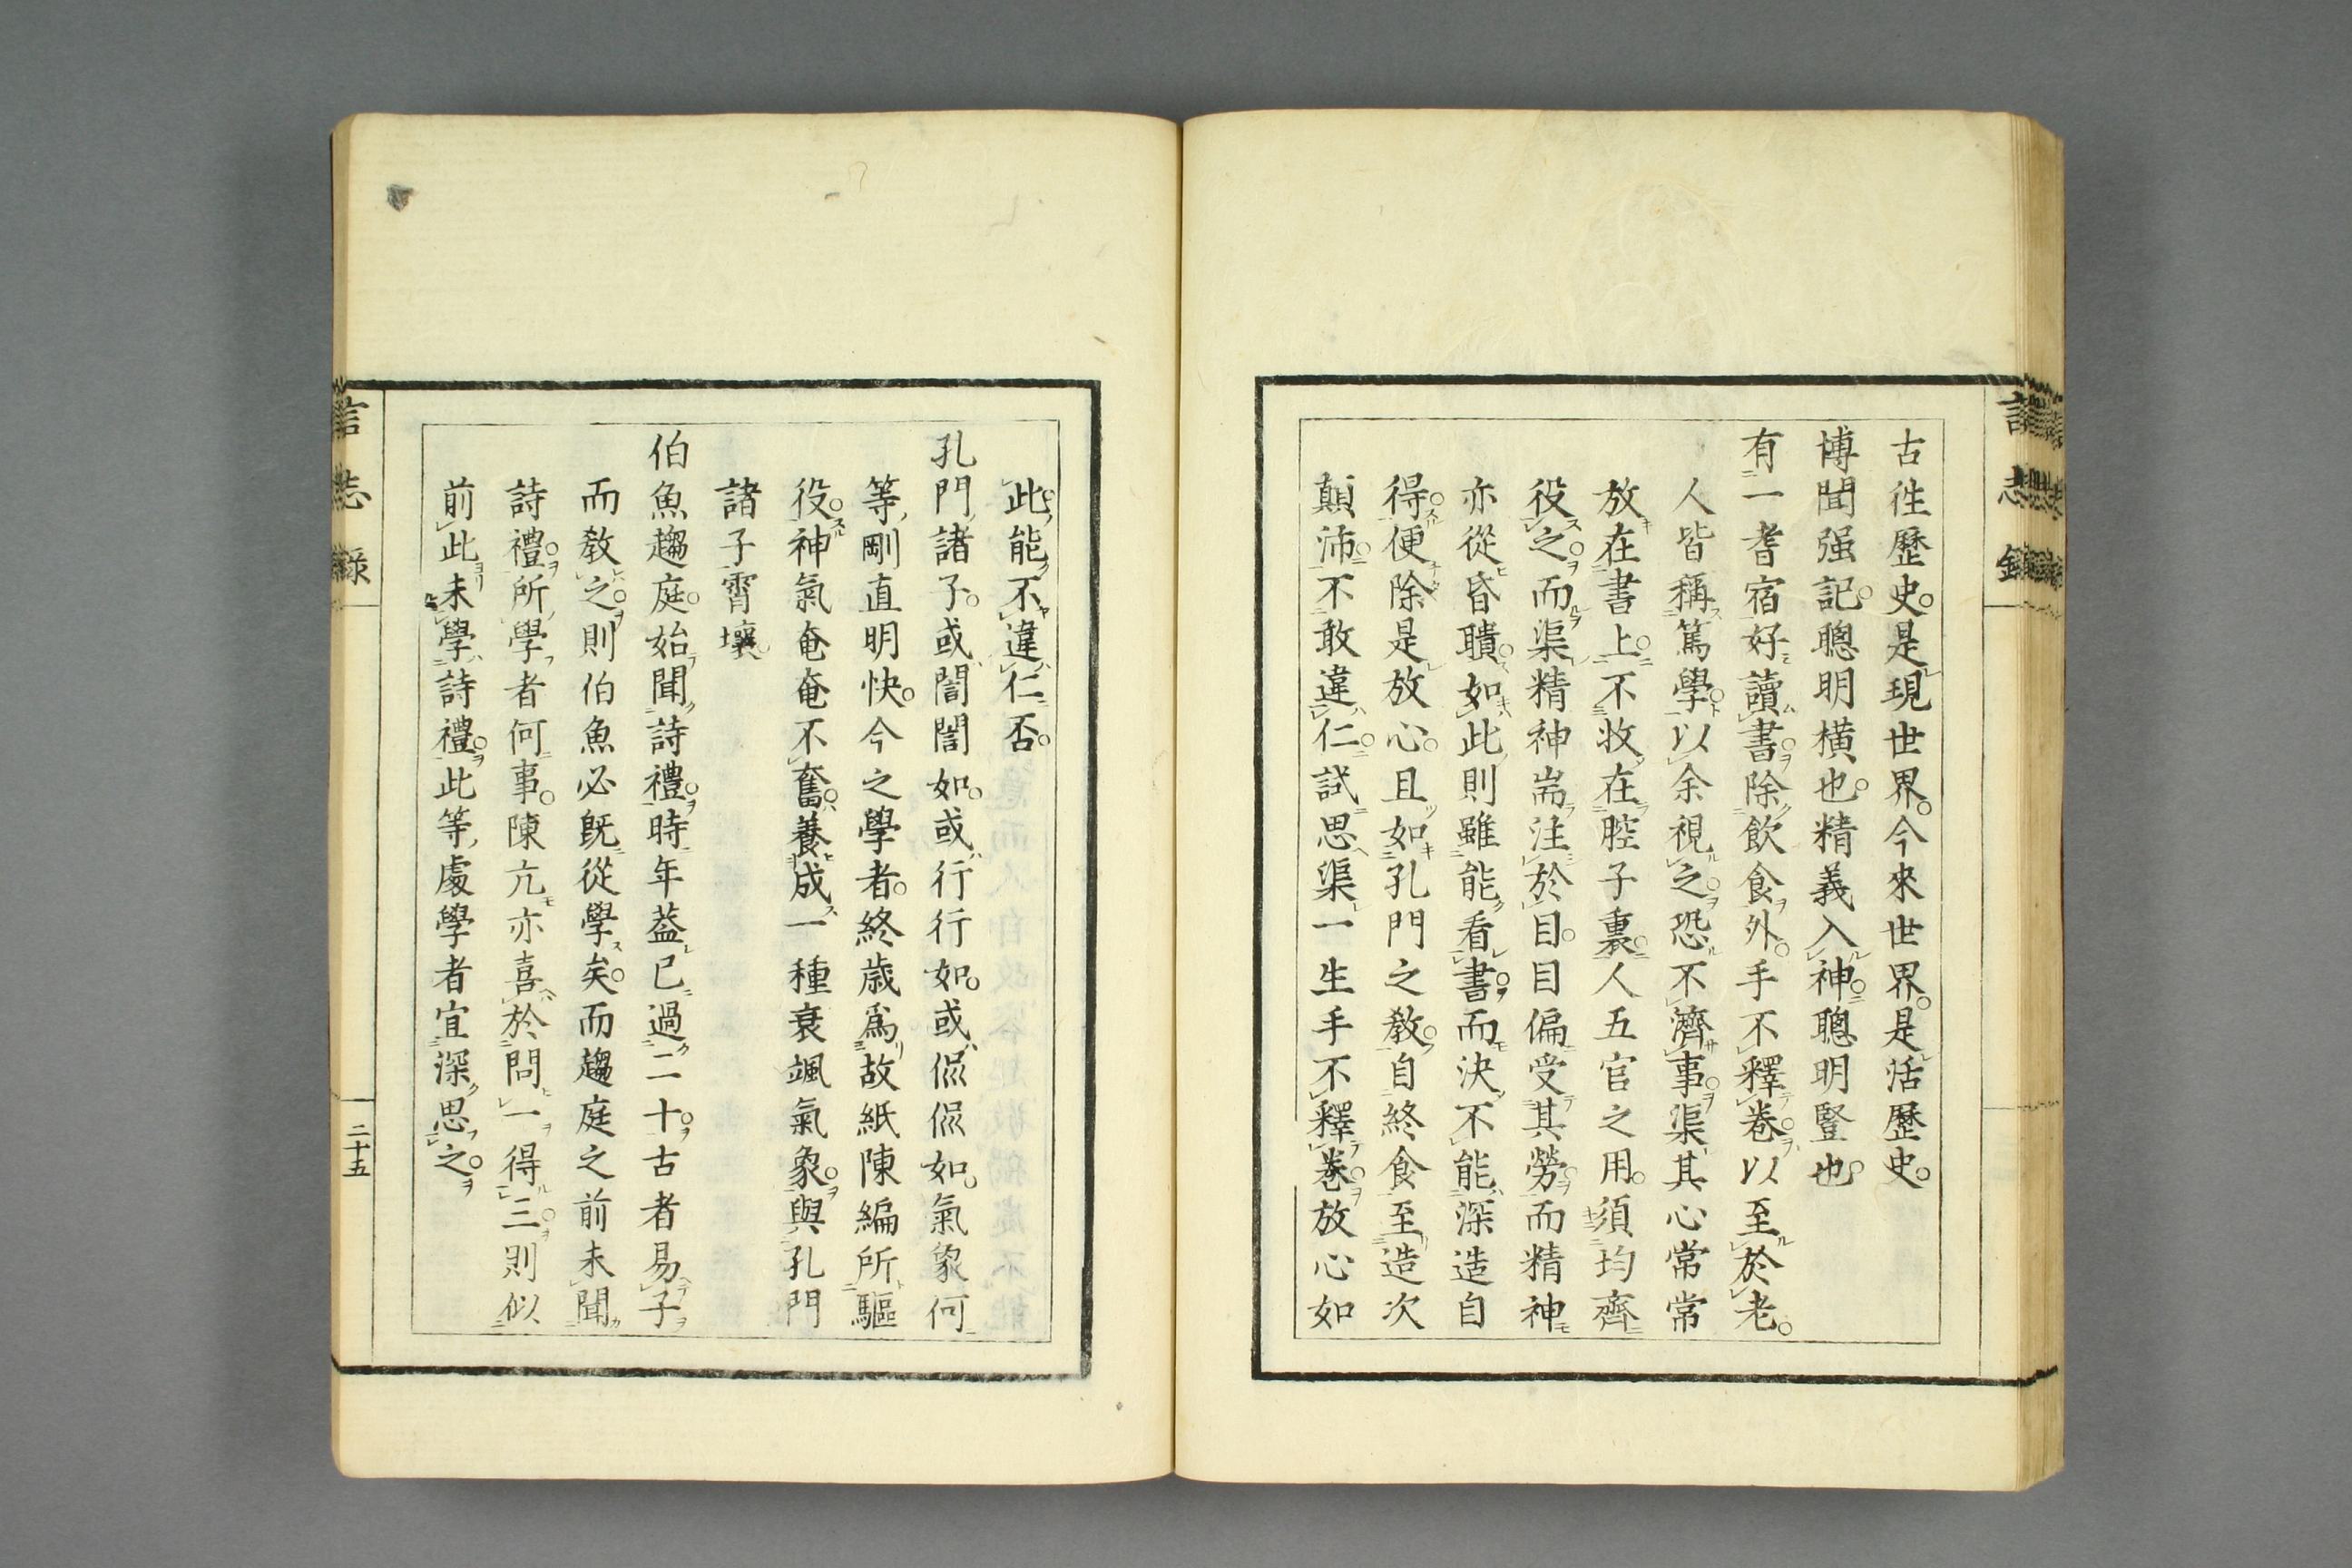 古徃歷史是現世界今來世界是活歷史
博聞强記聰明橫也精義入神聰明豎也
有一耆宿好讀書除飲食外手不釋卷以至於老
人皆稱篤學以余視之恐不濟事渠其心常常
放在書上不收在腔子裏人五官之用須均齊
役之而渠精神耑注於目目偏受其勞而精神
亦從昏聵如此則雖能看書而決不能深造自
得便除是放心且如孔門之敎自終食至造次
顚沛不敢違仁試思渠一生手不釋卷放心如
此能不違仁否
孔門諸子或誾誾如或行行如或侃侃如氣象何
等剛直明快今之學者終歲爲故紙陳編所驅
役神氣奄奄不奮養成一種衰颯氣象與孔門
諸子霄壤
伯魚趨庭始聞詩禮時年葢已過二十古者易子
而敎之則伯魚必旣從學矣而趨庭之前未聞
詩禮所學者何事陳亢亦喜於問一得三則似
前此未學詩禮此等處學者宜深思之
言志錄
二十五